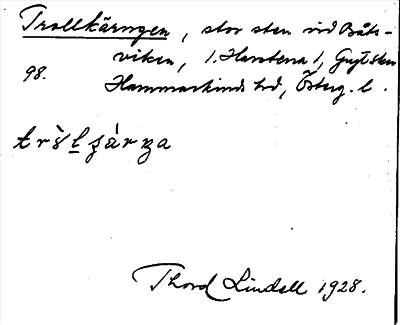 Trollkärngen, stor sten vid Båts-
viken, 1. Harstena 1, Gryts sn
98.
Hammarkinds hd, Österg. l.
Thord Lindell 1928.